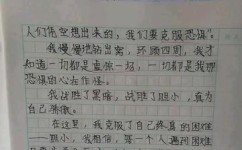 人们凭空想出来的，我们要克服恐惧"。
我慢慢地出窝，环顾四周，我才
知道一切都是虚惊一场，一切都是我那
恐惧的心在作怪。
我战胜了黑暗，战胜了胆小，真为
自己骄傲。
在这里，我克服了自己终真的困难
—胆小，我相信，每一个人遇到困难